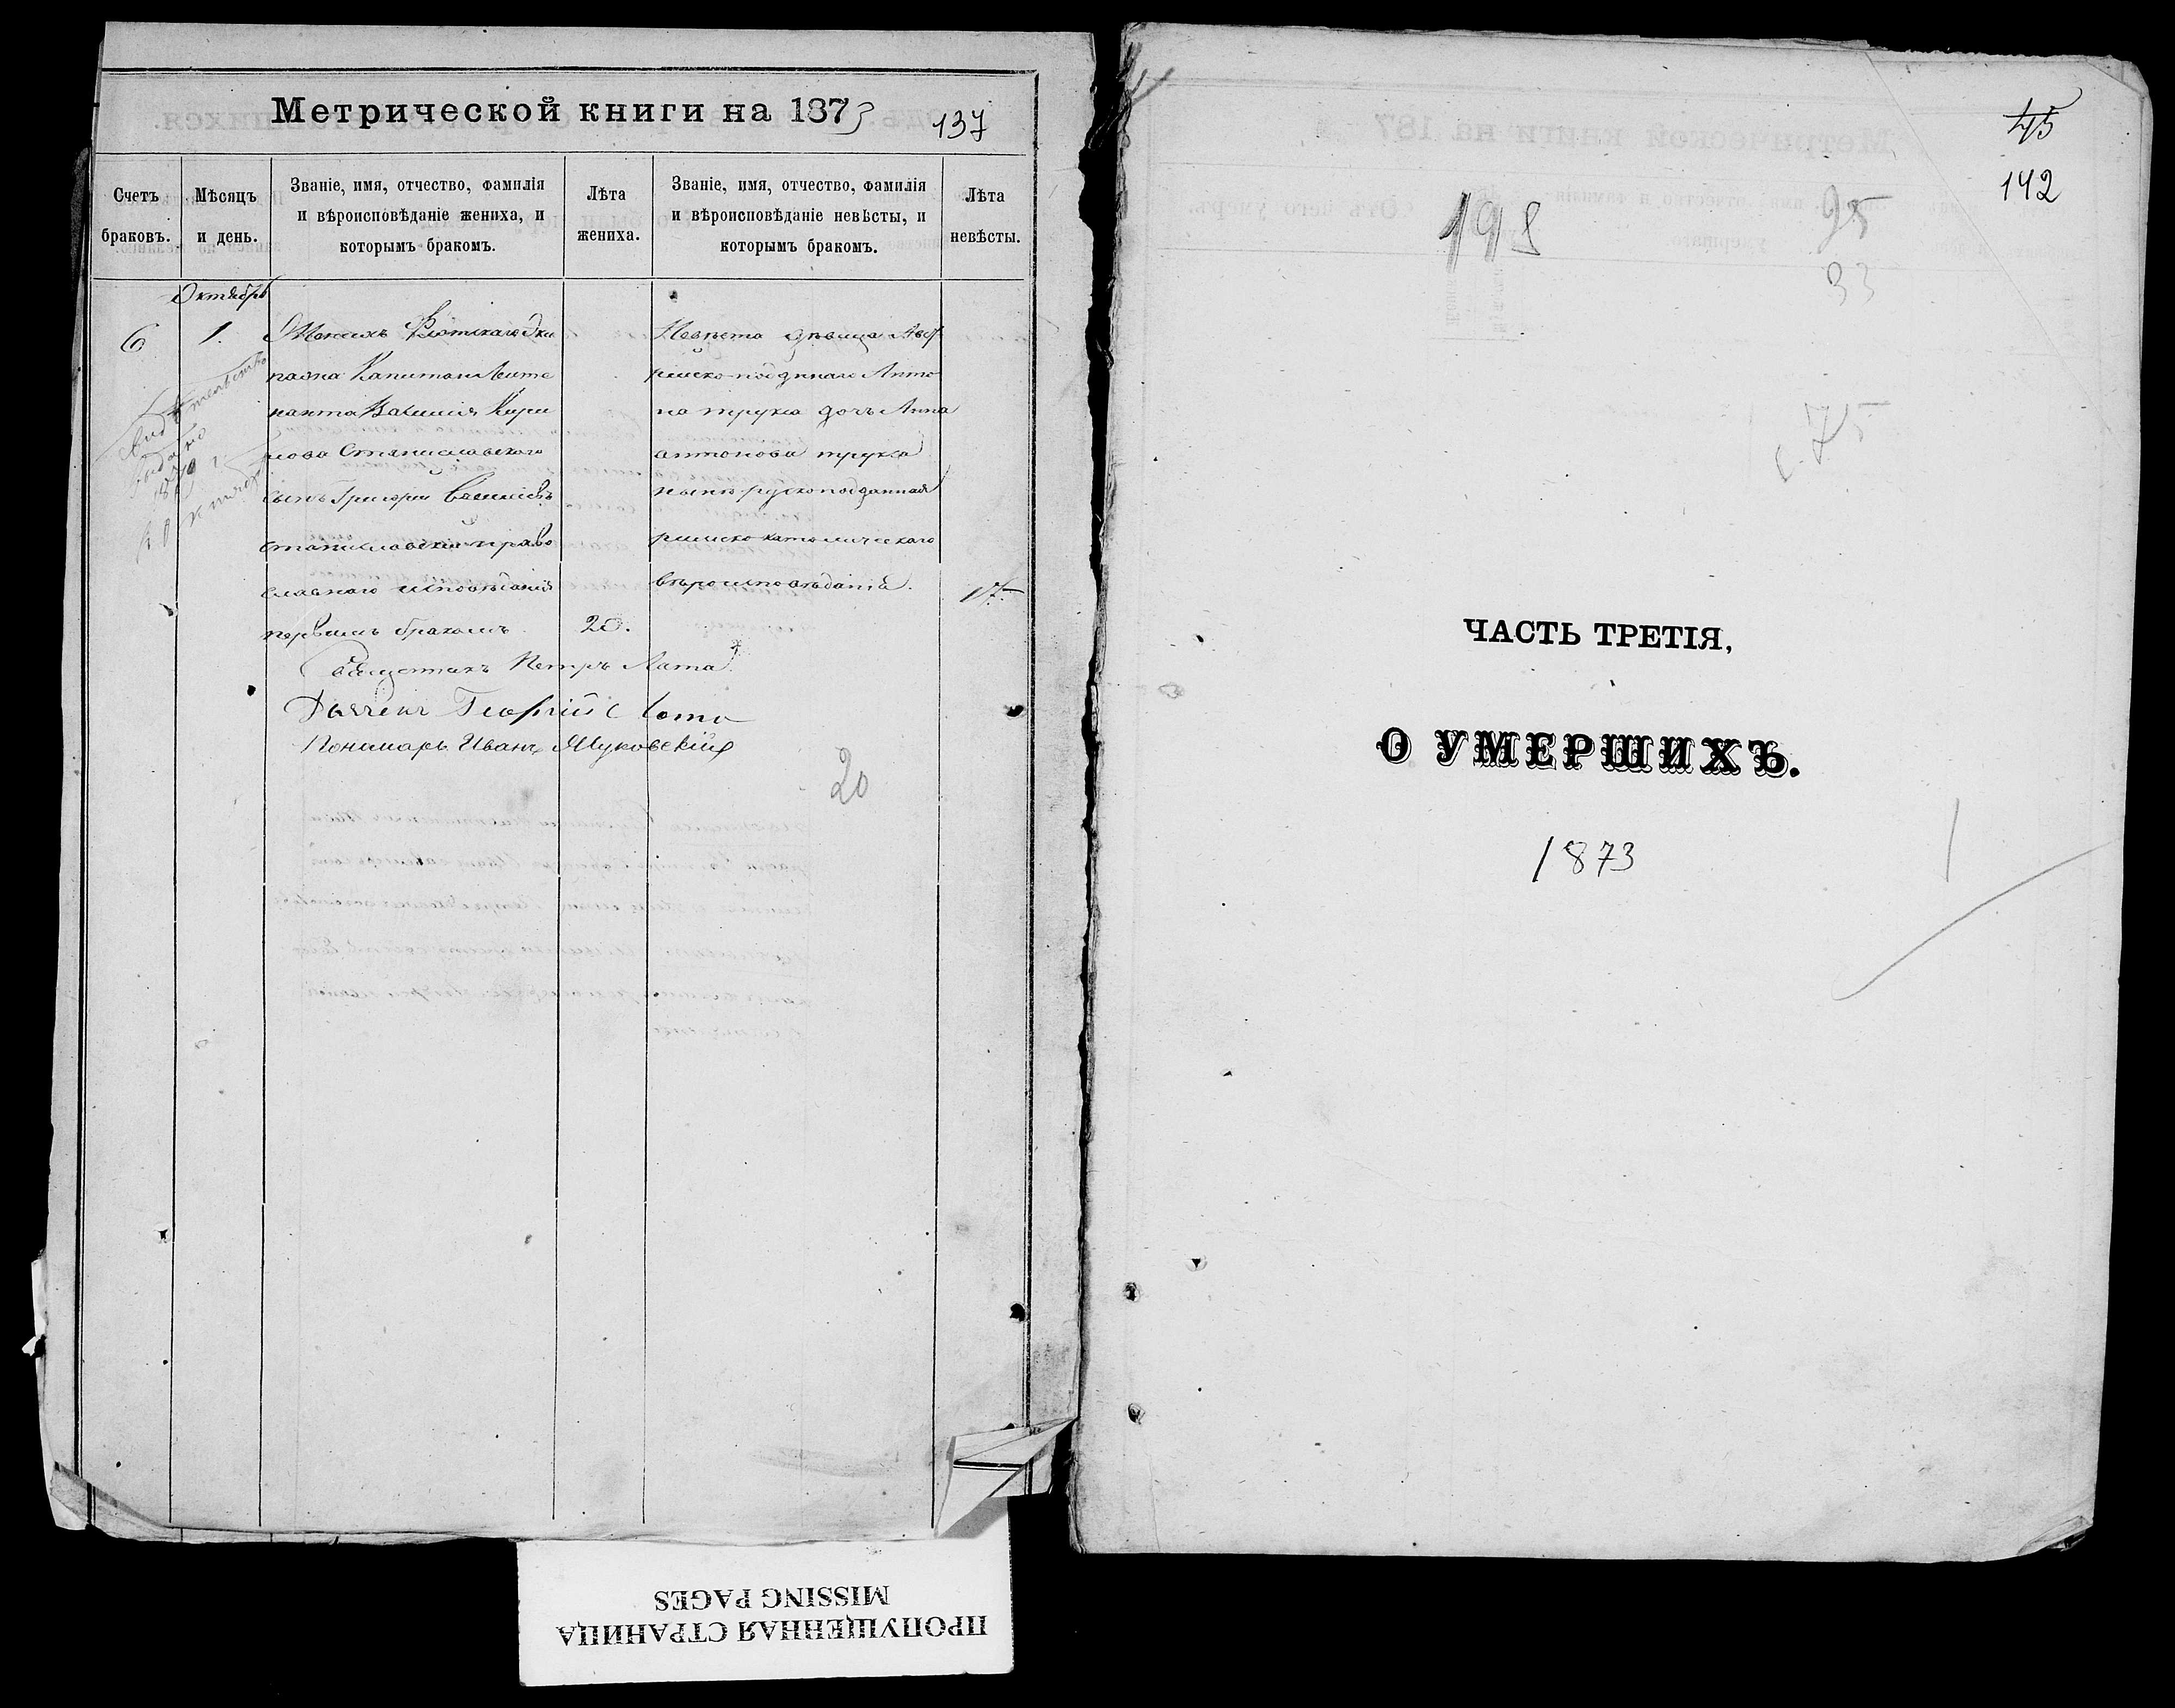 Метрической книги на 1873
137
Счетъ браковъ.
Мѣсяцъ и день.
Званіе, имя, отчество, фамилія и вѣроисповѣданіе жениха, и которымъ бракомъ.
Лѣта жениха.
Званіе, имя, отчество, фамилія и вѣроисповѣданіе невѣсты, и которымъ бракомъ.
Лѣта невѣсты.
Октябрь
6
1.
Женихъ Флотскаго Эки
пажа Капитана Лейте
нанта Василія Кири
лова Станиславскаго
сынъ Григорій
Станиславскій право
славнаго исповѣданія
первымъ бракомъ
20.
Невѣста дѣвица Авст
рійско-подданаго Анто
на дочь Анна
Антонова
нынѣ рускоподданная
римско-католическаго
вѣроисповѣданія.
17.
Священникъ Петръ Лата
Дьячекъ Георгій
Пономарь Иванъ Жуковскій
20
45
142
198
95
33
75
ЧАСТЬ ТРЕТІЯ,
О УМЕРШИХЪ.
1873
ПРОПУЩЕННАЯ СТРАНИЦА
MISSING PAGES